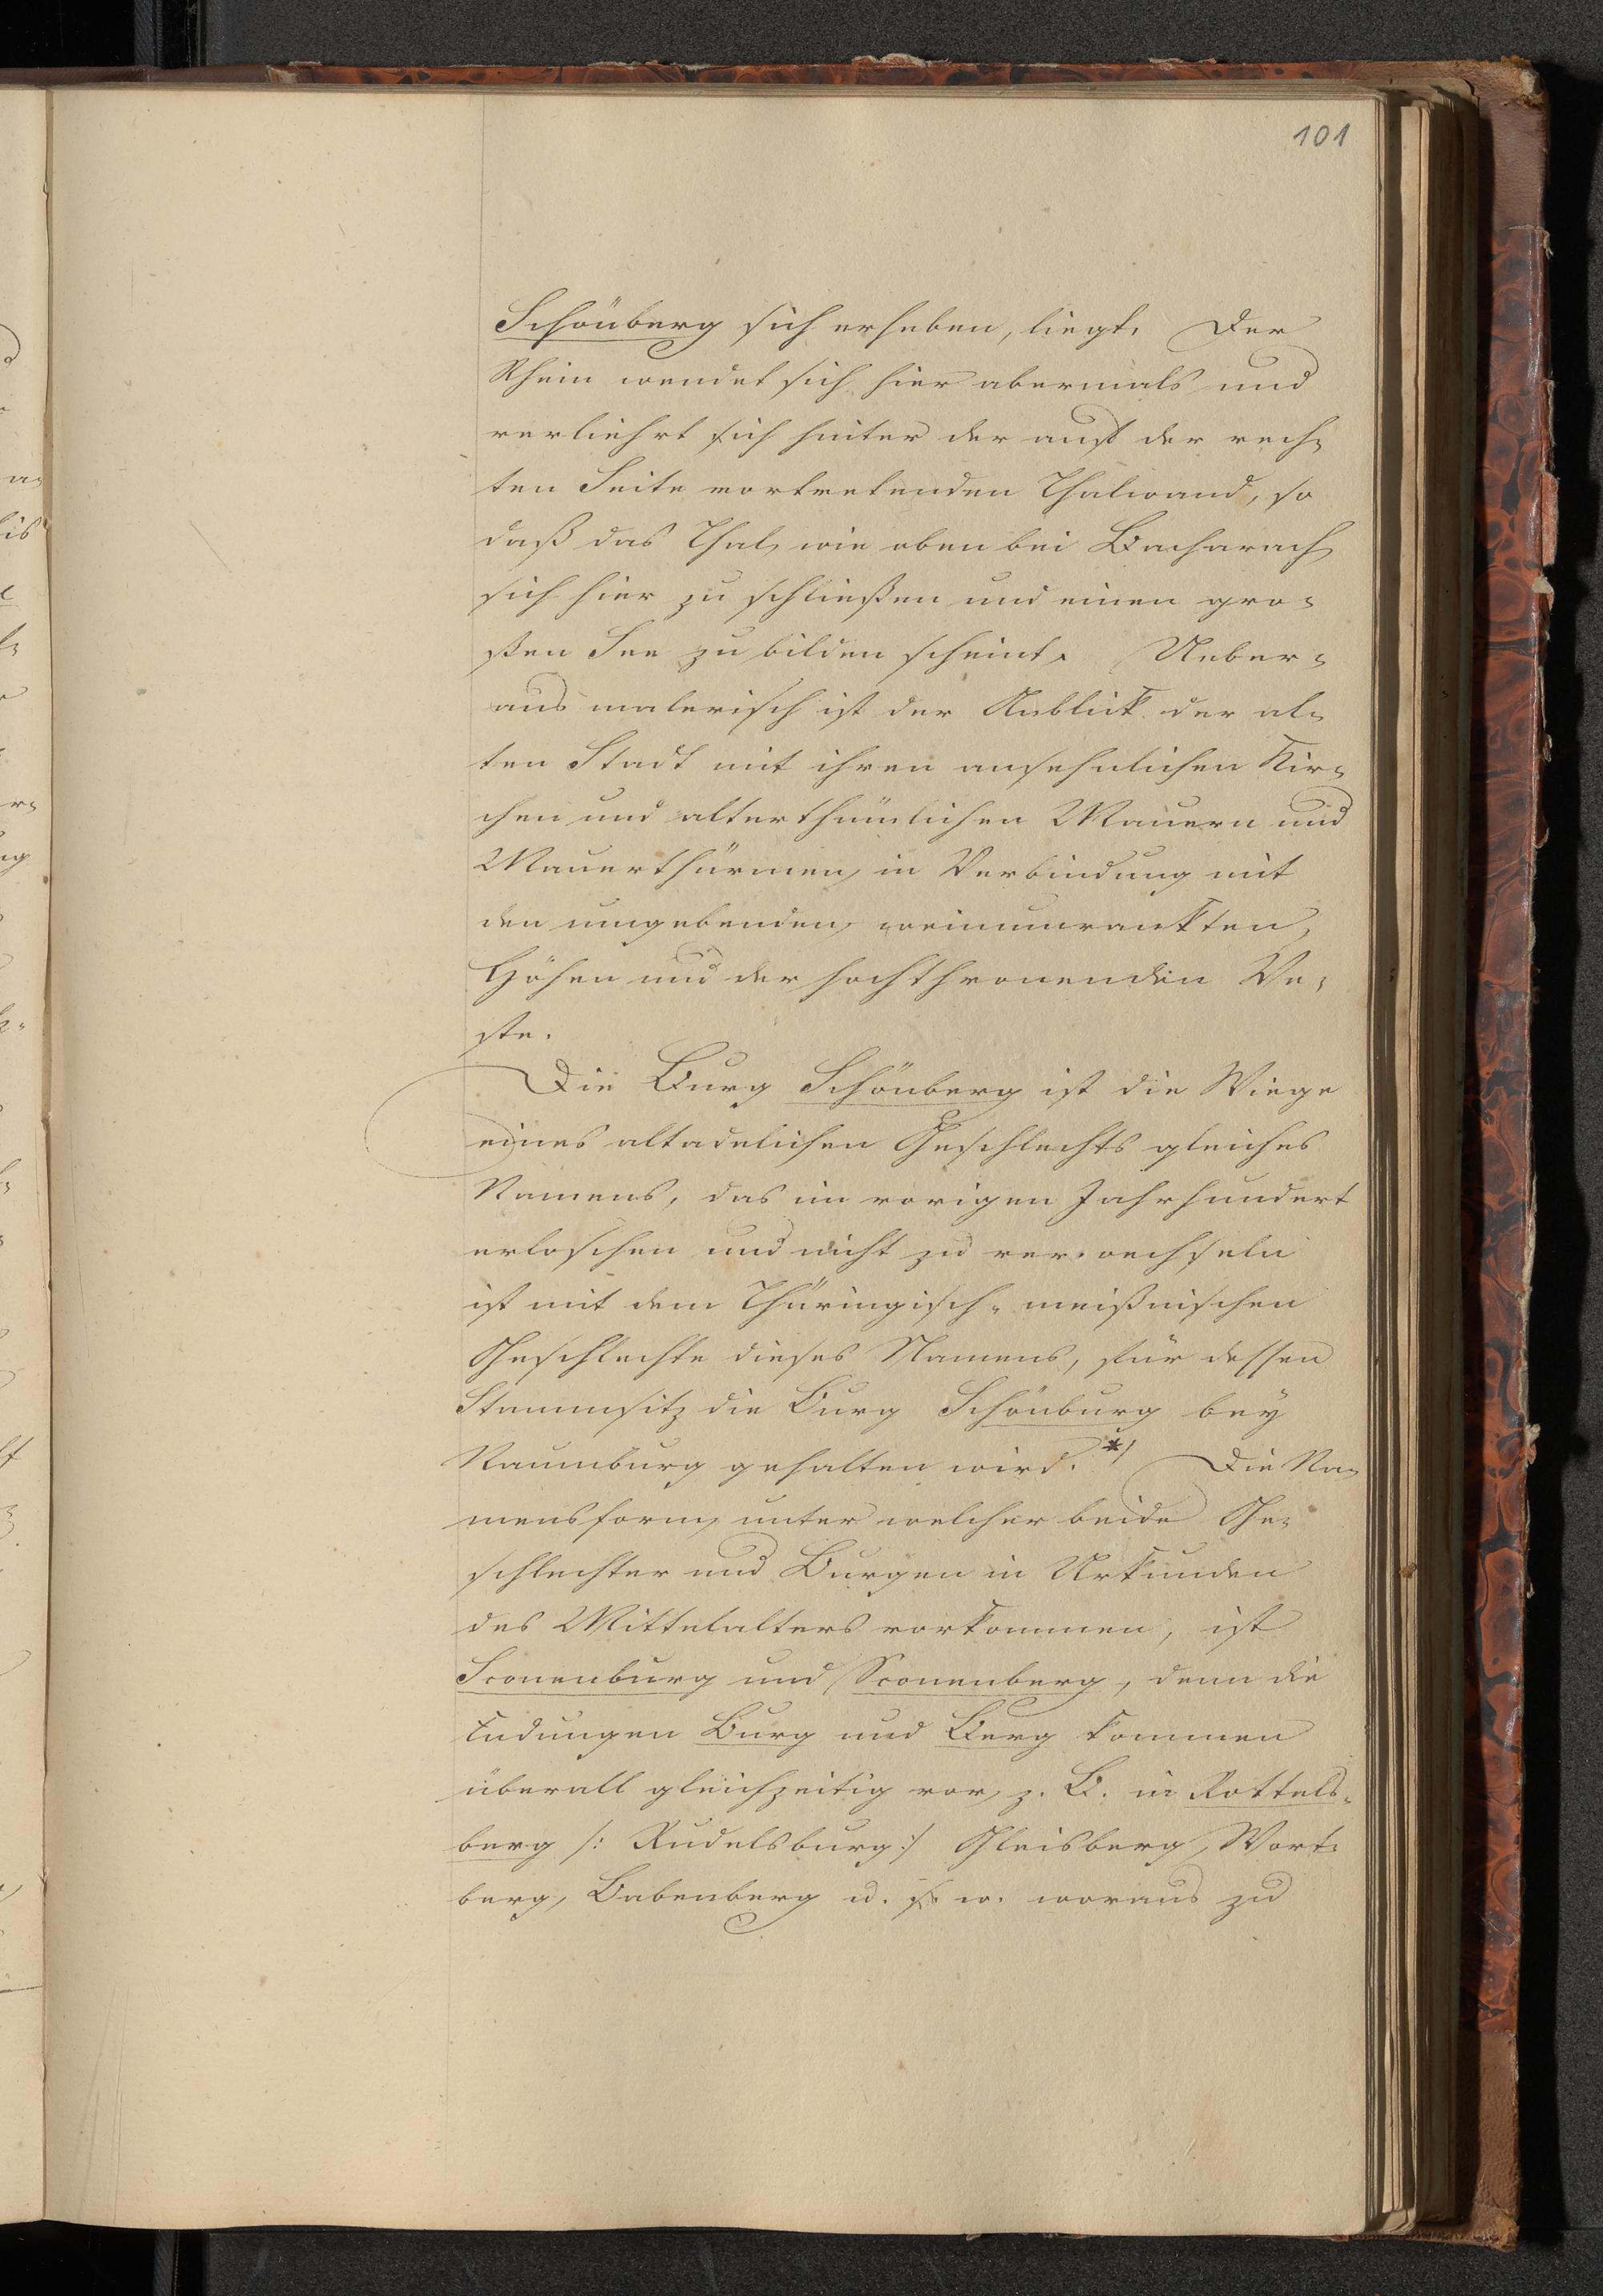 101
Schönberg sich erheben, liegt. Der
Rhein wendet sich hier abermals und
verliehrt sich hinter der auf der rech-
ten Seite vortretenden Thalwand, so
daß das Thal, wie oben bei Bacharach,
sich hier zu schließen und einen gro-
ßen See zu bilden scheint. Ueber-
aus malerisch ist der Anblick der al-
ten Stadt mit ihren ansehnlichen Kir-
chen und alterthümlichen Mauern und
Mauerthürmen, in Verbindung mit
den umgebenden, weinumrankten,
Höhen und der hochthronenden Ve-
ste.
Die Burg Schönberg ist die Wiege
eines altadelichen Geschlechts gleiches
Namens, das im vorigen Jahrhundert
erloschen und nicht zu verwechseln
ist mit dem Thüringisch-meißnischen
Geschlechte dieses Namens, für dessen
Stammsitz die Burg Schönburg bey
Naumburg gehalten wird. *) Die Na-
mensform, unter welcher beide Ge-
schlechter und Burgen in Urkunden
des Mittelalters vorkommen, ist
Sconenburg und Sconenberg, denn die
Endungen Burg und Berg kommen
überall gleichzeitig vor, z. B. in Rottels-
berg /: Rudelsburg :/ Gleisberg, Wart-
berg, Babenberg u. s. w. woraus zu